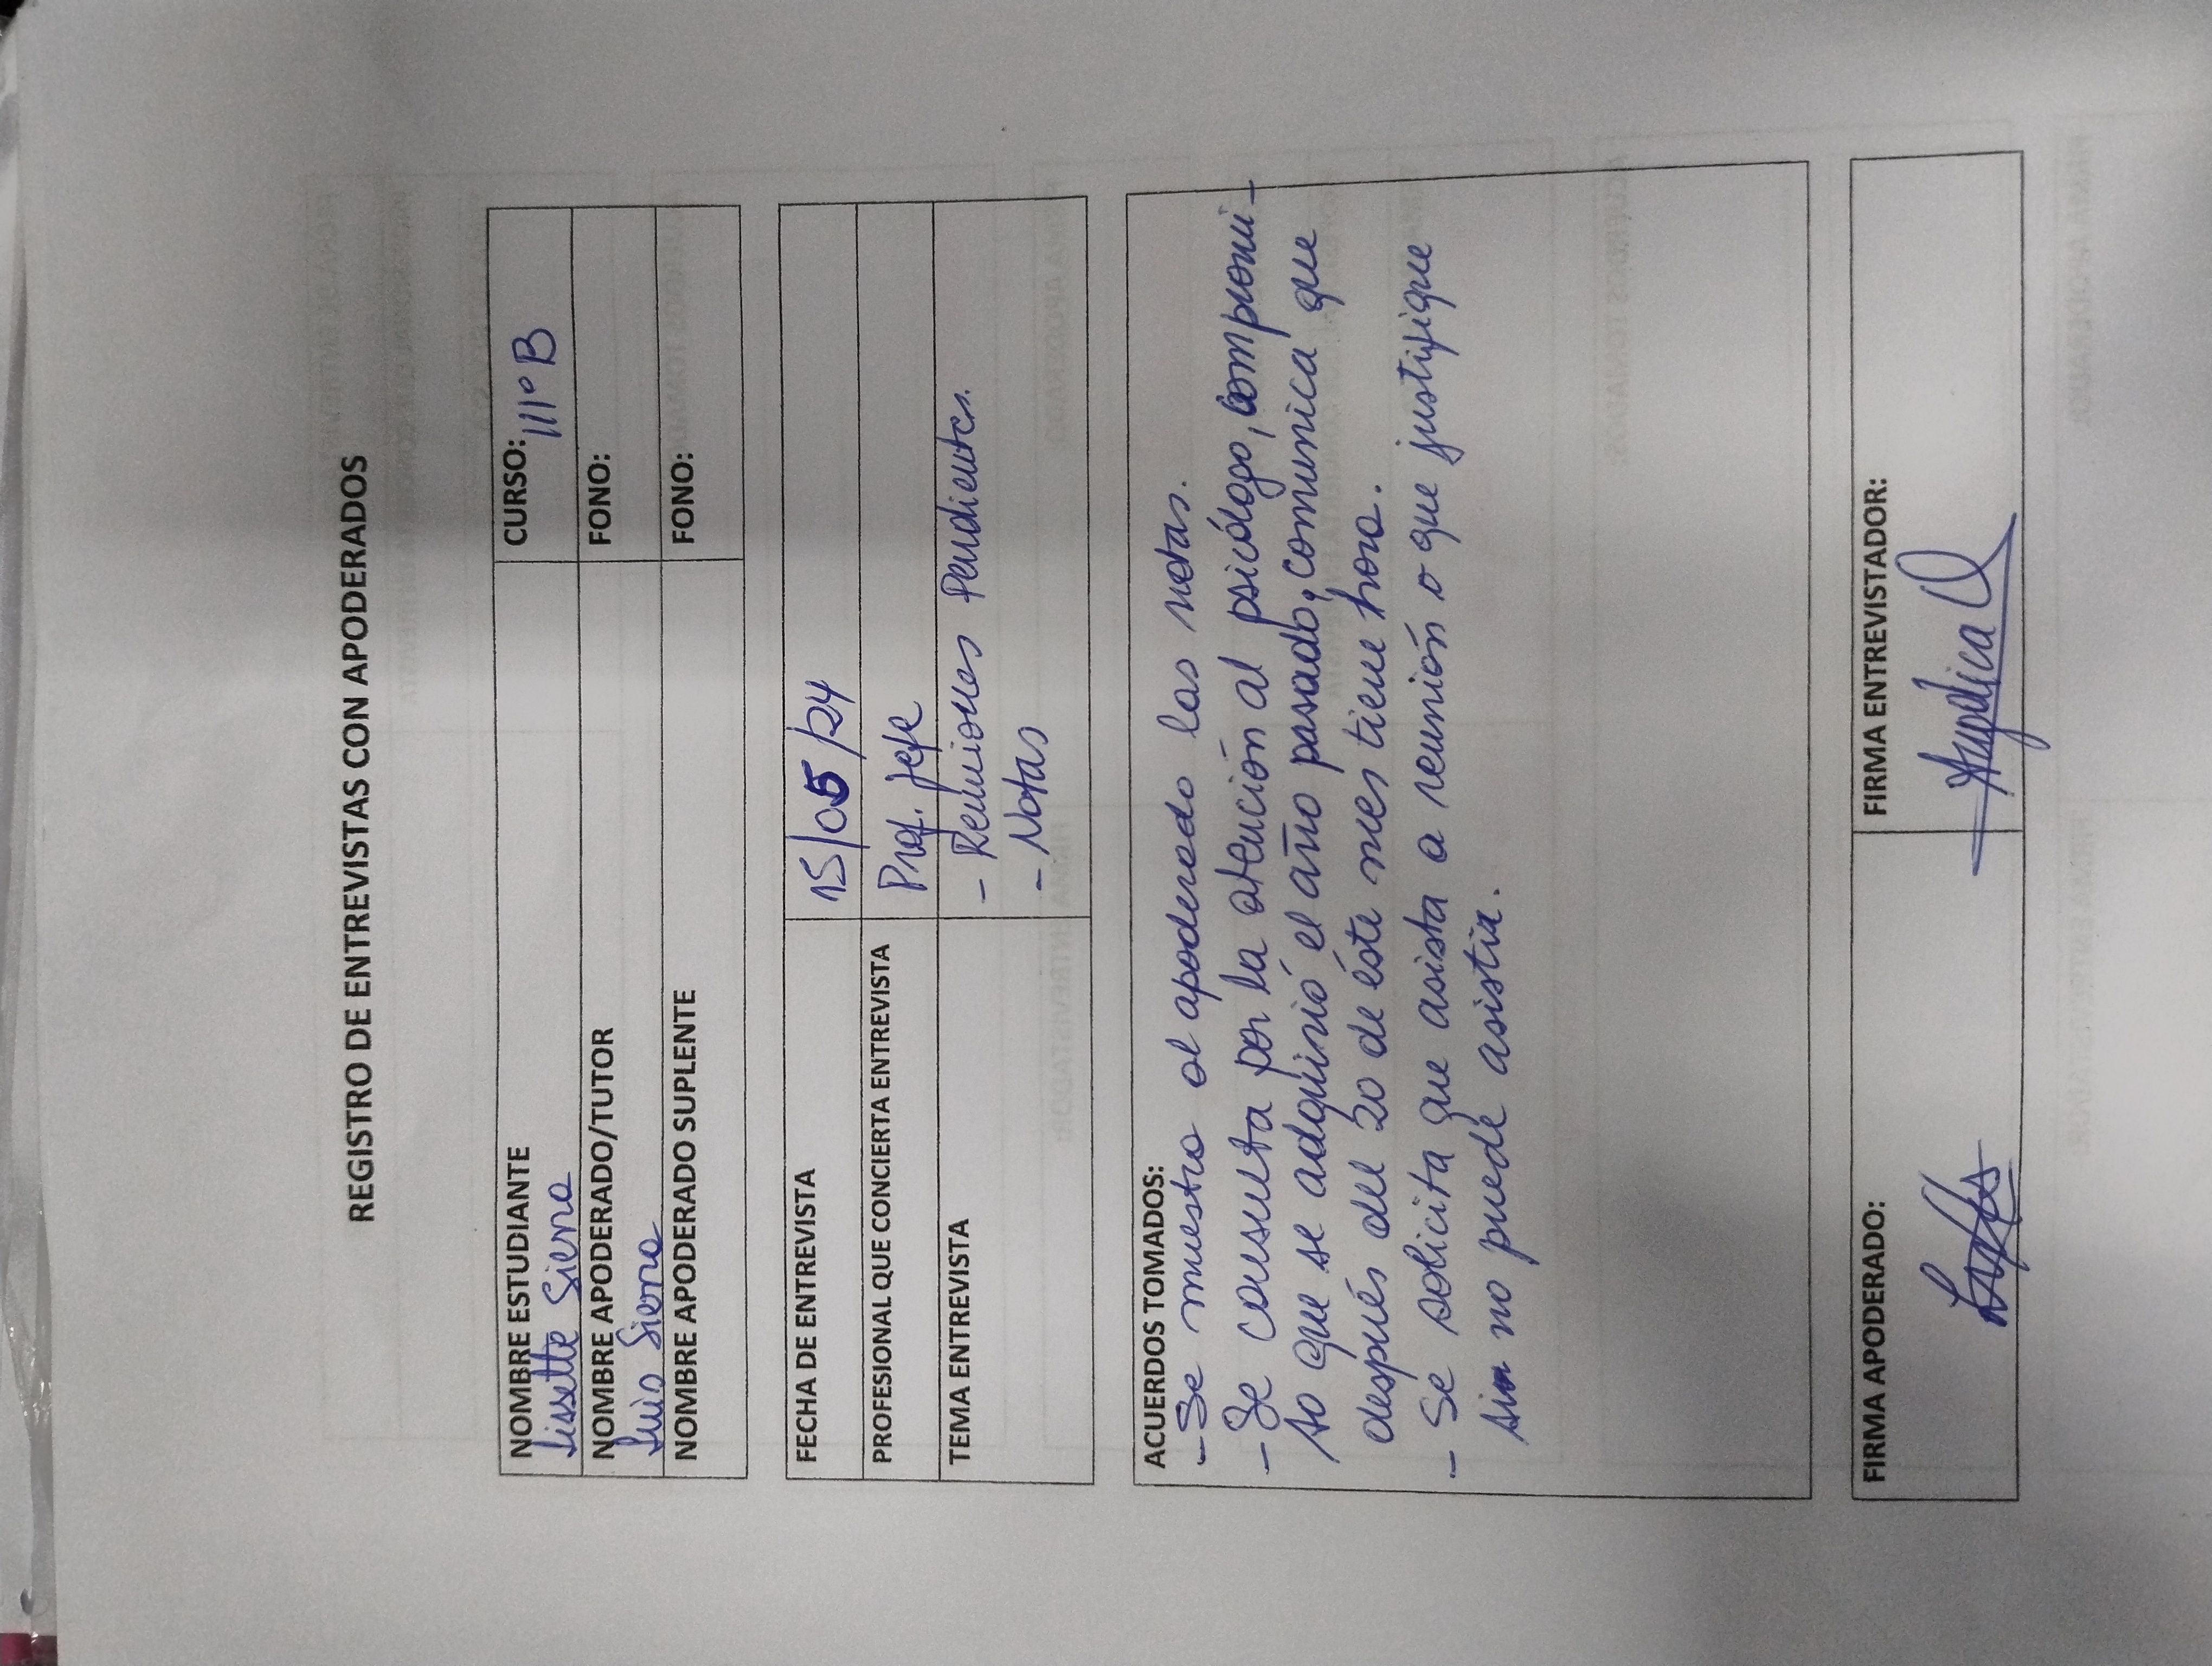 REGISTRO DE ENTREVISTAS CON APODERADOS
NOMBRE ESTUDIANTE CURSO: IIIº B
Lissette Sierra
NOMBRE APODERADO/TUTOR FONO:
Luis Sierra
NOMBRE APODERADO SUPLENTE FONO:
FECHA DE ENTREVISTA 15/05/24
PROFESIONAL QUE CONCIERTA ENTREVISTA Prof. jefe
TEMA ENTREVISTA - Reuniones Pendientes.
- Notas
ACUERDOS TOMADOS:
- Se muestra al apoderado las notas.
- Se consulta por la atención al psicólogo, compromi-
so que se adquirió el año pasado, comunica que
después del 20 de éste mes tiene hora.
- Se solicita que asista a reunión o que justifique
si no puede asistir.
FIRMA APODERADO: FIRMA ENTREVISTADOR:
Angélica